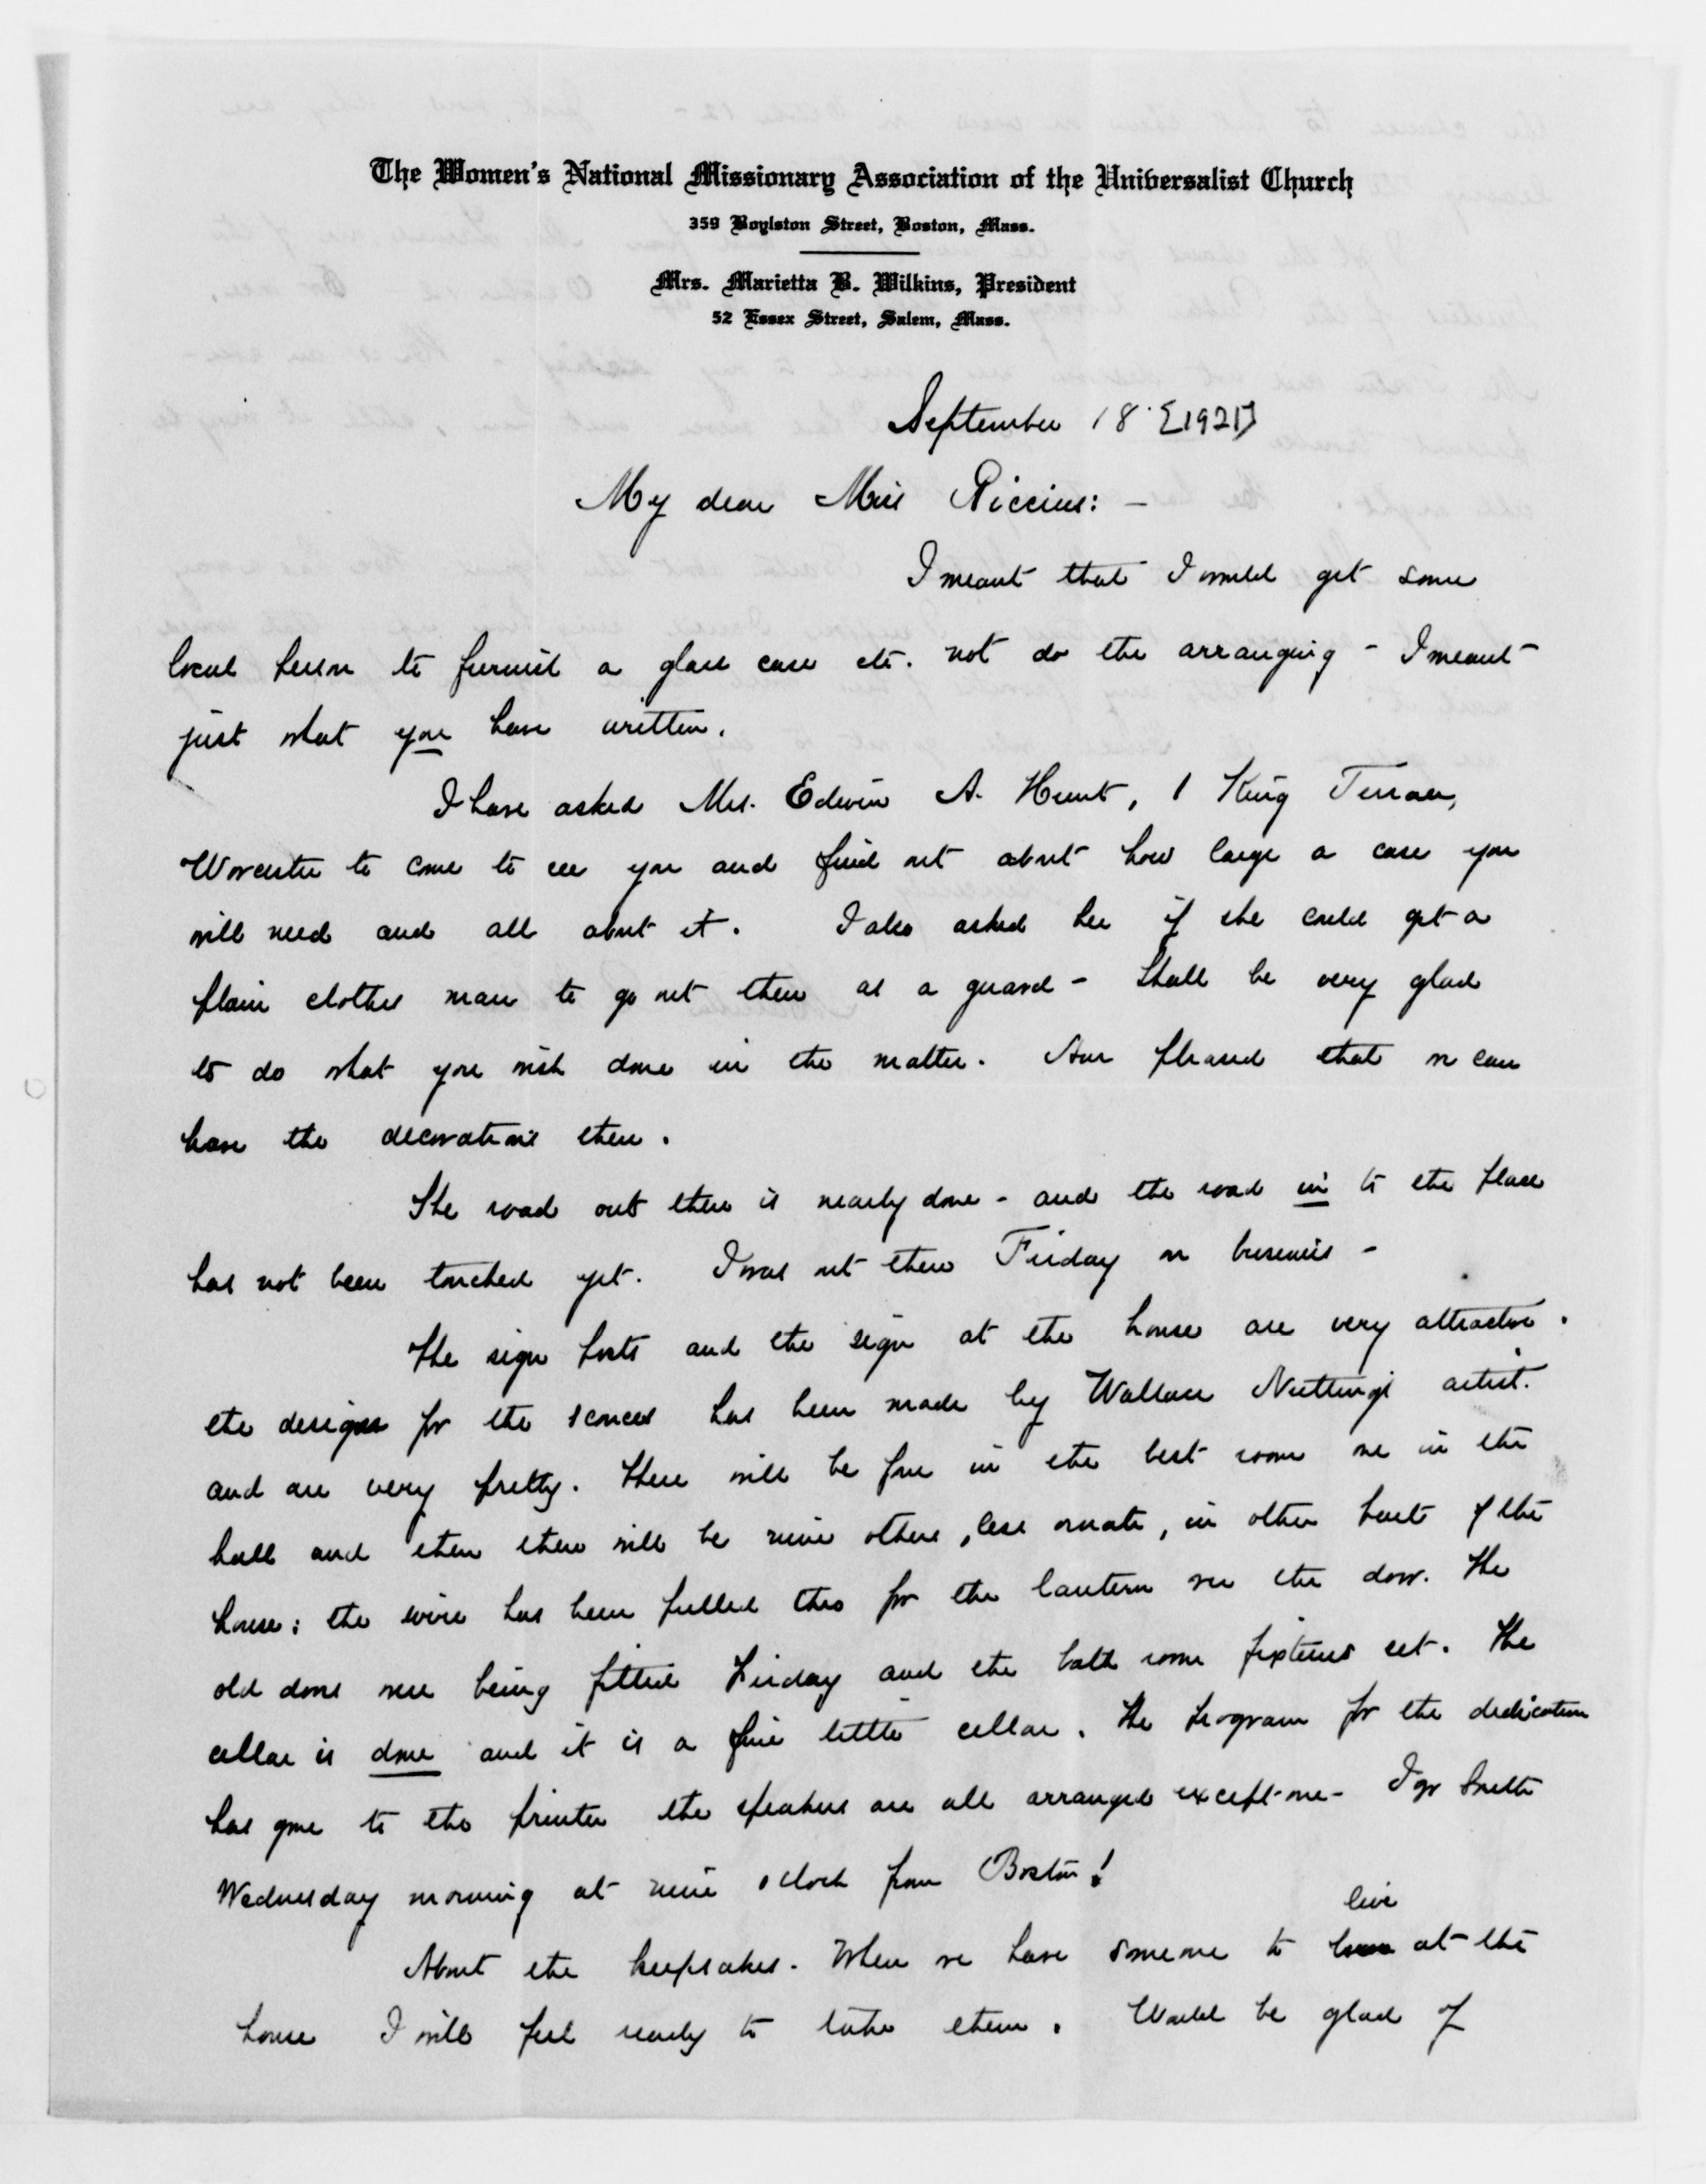 The Women's National Missionary Association of the Universalist Church
359 Boylston Street, Boston, Mass.
Mrs. Marietta B. Wilkins, President
52 Essex Street, Salem, Mass.
September 18 [1921]
My dear Miss Riccius: -
I meant that I would get some
local person to furnish a glass case etc. not do the arranging - I meant
just what you have written.
I have asked Mrs. Edwin A. Hunt, 1 King Terrace,
Worcester to come to see you and find out about how large a case you
will need and all about it. I also asked her if she could get a
plain clothes man to go out there as a guard - Shall be very glad
to do what you wish done in the matter. Am pleased that we can
have the decorations there.
The road out there is nearly done - and the road in to the place
has not been touched yet. I was out there Friday on business -
The sign posts and the sign at the house are very attractive.
the designs for the sconces has been made by Wallace Nutting's artist.
and are very pretty. There will be five in the best room one in the
hall and then there will be nine others, less ornate, in other parts of the
house: the wire has been pulled thro for the lantern over the door. The
old doors were being fitted Friday and the bath room fixtures set. The
cellar is done and it is a fine little cellar. The program for the dedication
has gone to the printer the speakers are all arranged except one - I go
Wednesday morning at nine o'clock from Boston!
About the keepsakes. When we have someone to live at the
house I will feel ready to take them. Would be glad of